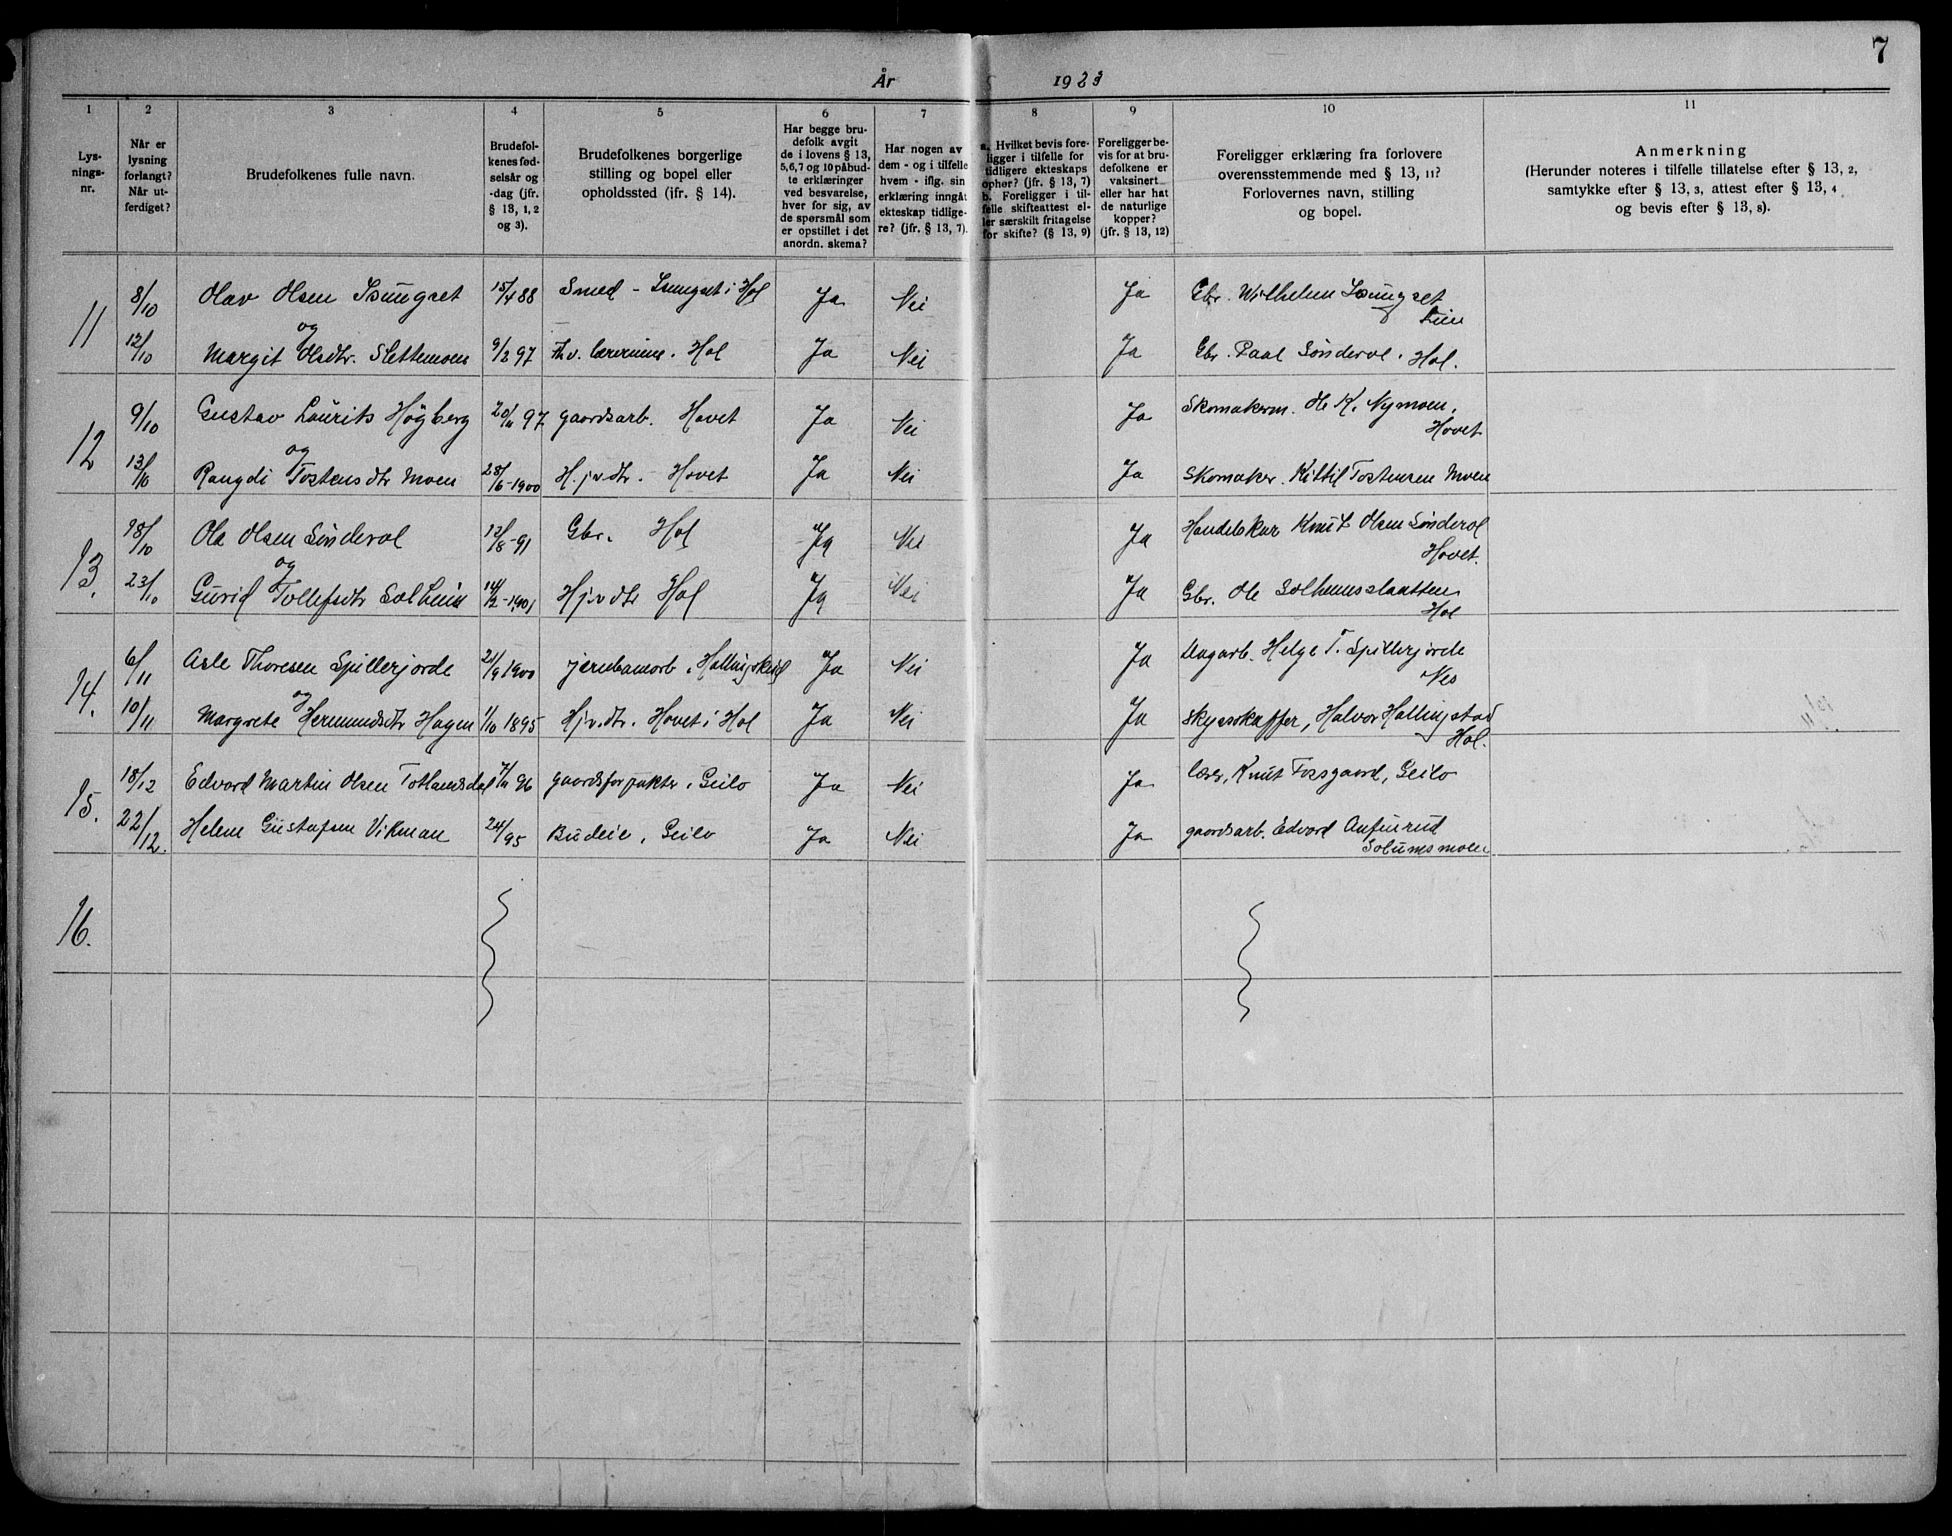 7
År 1923
1 2 3 4 5 6 7 8 9 10 11
Lys-
nings-
nr.
Når er
lysning
forlangt?
Når ut-
ferdiget?
Brudefolkenes fulle navn.
Brudefol-
kenes fød-
selsår og
-dag (jfr.
§ 13, 1, 2
og 3).
Brudefolkenes borgerlige
stilling og bopel eller
opholdssted (ifr. § 14).
Har begge bru-
defolk avgit
de i lovens § 13,
5,6,7 og 10 påbud-
te erklæringer
ved besvarelse,
hver for sig, av
de spørsmål som
er opstillet i det
anordn. skema?
Har nogen av
dem - og i tilfelle
hvem - iflg. sin
erklæring inngåt
ekteskap tidlige-
re? (jfr. § 13, 7).
a. Hvilket bevis fore-
ligger i tilfelle for
tidligere ekteskaps
ophør? (jfr. § 13, 7)
b. Foreligger i til-
felle skifteattest el-
ler særskilt fritagelse
for skifte? (§ 13, 9)
Foreligger be-
vis for at bru-
defolkene er
vaksinert
eller har hat
de naturlige
kopper?
(jfr. § 13, 12)
Foreligger erklæring fra forlovere
overensstemmende med § 13, 11?
Forlovernes navn, stilling
og bopel.
Anmerkning
(Herunder noteres i tilfelle tillatelse efter § 13, 2,
samtykke efter § 13, 3, attest efter § 13, 4
og bevis efter § 13, 8).
11 8/10 Olav Olsen Isungset 15/4 88 Smed - Isungset i Hol Ja Nei Ja Gbr. Wilhelm Isungset
og
12/10 Margit Olsdtr. Slettemoen 9/2 97 Fhv. lærerinne. Hol Ja Nei Ja Gbr. Paal Sønderol. Hol.
12 9/10 Gustav Laurits Høgberg 20/11 97 gaardsarb. Hovet Ja Nei Ja Skomakerm. Ole K. Nymoen,
Hovet
og
13/10 Rangdi Tostensdtr Moen 28/6-1900 Hj.v.dtr. Hovet Ja Nei Ja Skomaker. Kittil Tostensen Moen
13. 18/10 Ola Olsen Sønderol 13/8-91 Gbr. Hol Ja Nei Ja Handelskar Knut Olsen Sønderol
Hovet.
og
23/10 Gurid Tollefsdtr Solheim 14/12-1901 Hj.v.dtr Hol Ja Nei Ja Gbr. Ole Solheimsslaatten
Hol
14. 6/11 Asle Thoresen Spillerjorde 21/9 1900 jernbanearb. Hallingskeid Ja Nei Ja Dagarb. Helge T. Spillerjorde
Nes
og
10/11 Margrete Hermundsdtr Hagen 1/10 1895 Hj.v.dtr. Hovet i Hol Ja Nei Ja Skysskaffer, Halvor Hallingstad
Hol.
15. 18/12 Edvard Martin Olsen Totlandsdal 7/11 96 gaardsforpakter, Geilo Ja Nei Ja lærer, Knut Fossgaard, Geilo
22/12. Helene Gustafsen Vikman 24/ 95 Budeie, Geilo Ja Nei Ja gaardsarb. Edvard Anfinrud
Solumsmoen
16.